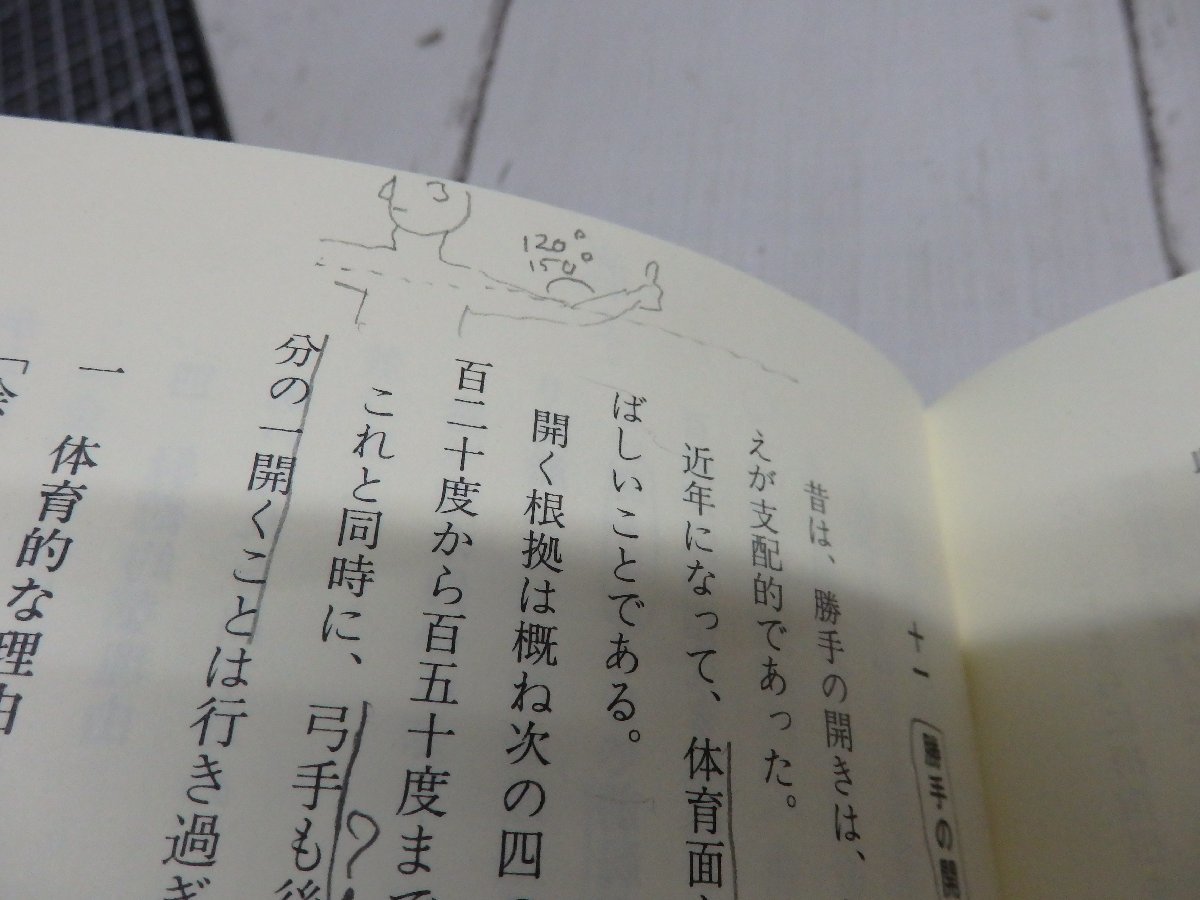 十一 勝手の開
昔は、勝手の開きは、
えが支配的であった。
近年になって、体育面
ばしいことである。
開く根拠は概ね次の四
百二十度から百五十度まで
これと同時に、弓手も後
分の一開くことは行き過ぎ
一 体育的な理由
120°
150°
?